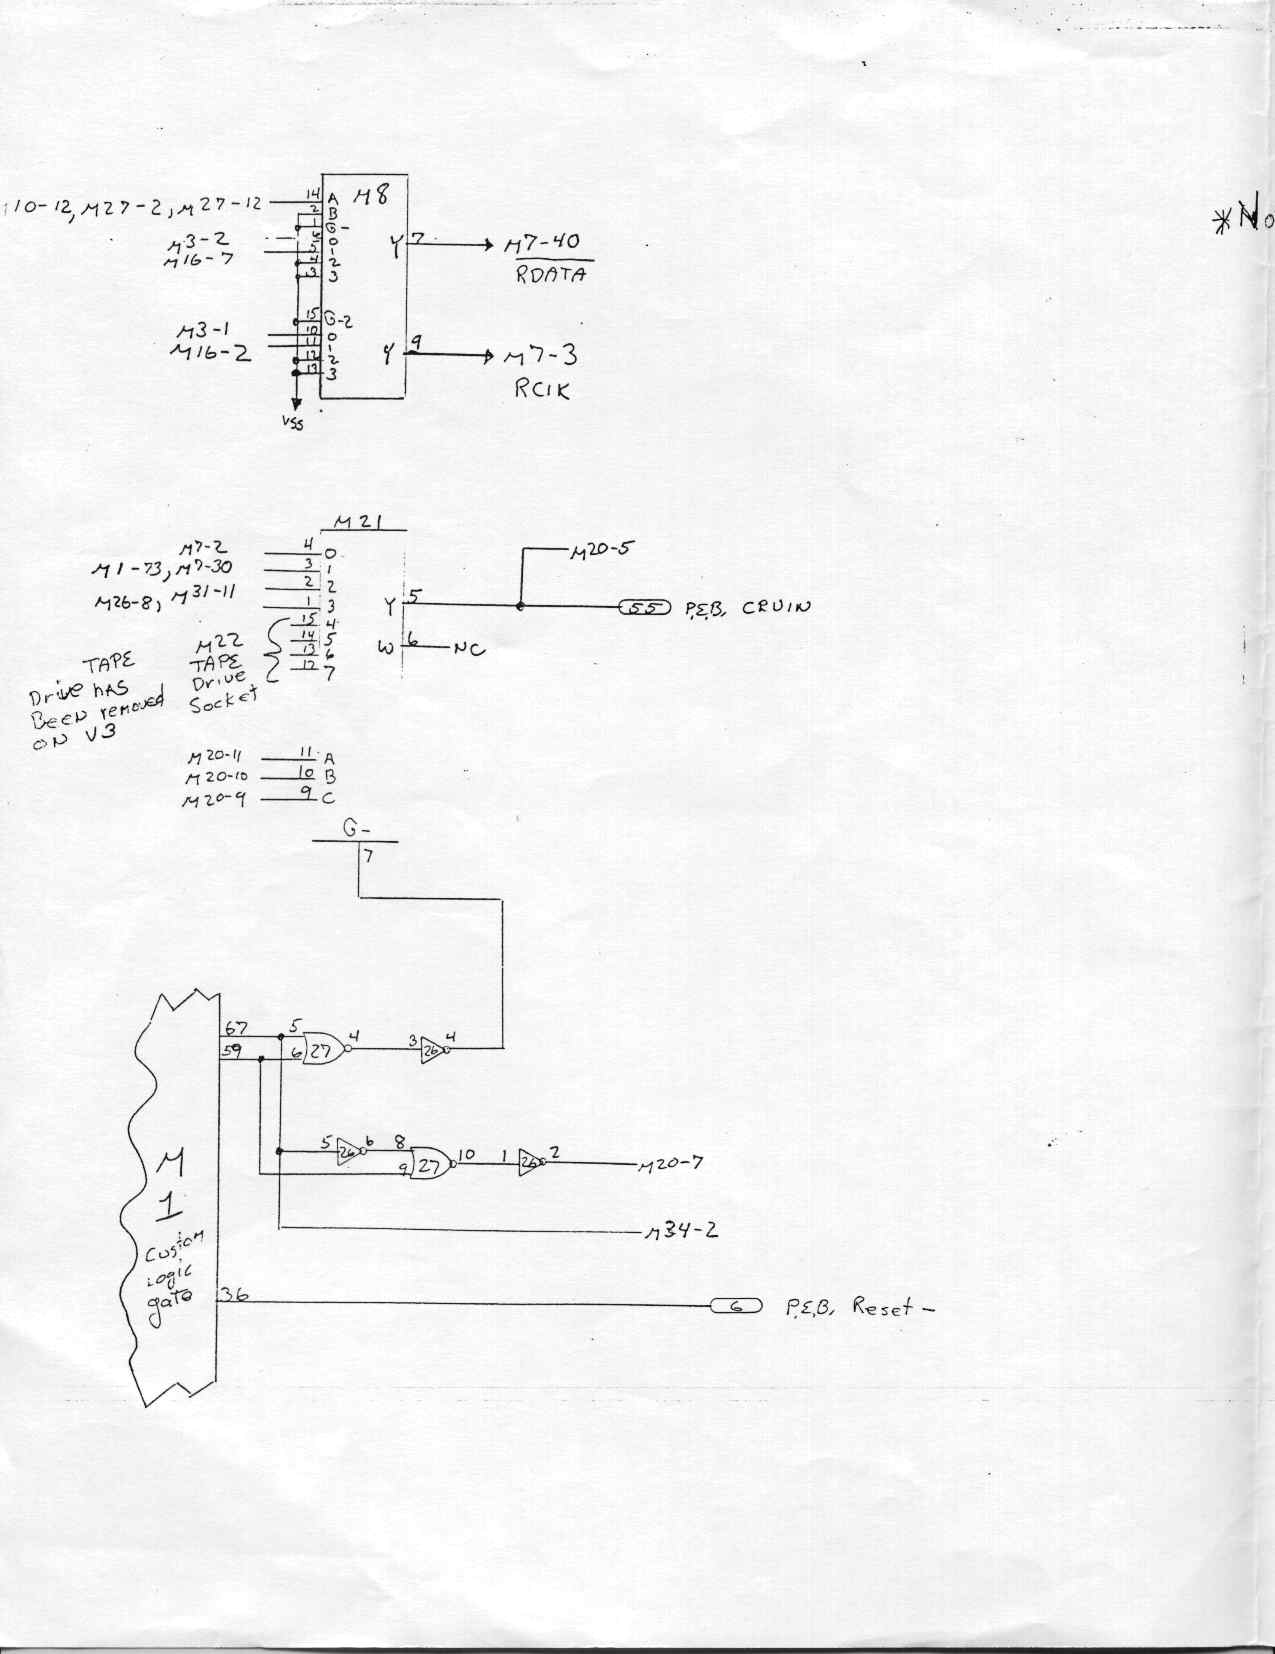 110-12, M27-2, M27-12 14 A M8
2 B
1 G-
M3-2 6 0 Y 7 M7-40
M16-7 5 1 RDATA
4 2
3 3
15 G-2
M3-1 10 0
M16-2 11 1 Y 9 M7-3
12 2 RCIK
13 3
VSS
*No
M21
M7-2 4 0 M20-5
M1-73, M7-30 3 1
M26-8, M31-11 2 2
1 3 Y 5 55 P.E.B. CRUIN
15 4
M22 14 5
TAPE 13 6 W 6 NC
Drive 12 7
Socket
TAPE
Drive HAS
BEEN removed
ON V3
M20-11 11 A
M20-10 10 B
M20-9 9 C
G-
7
67 5 27 4 3 26 4
59 6
5 26 6 8 27 10 1 26 2 M20-7
9
M
1
M34-2
Custom
Logic
gate
36 6 P.E.B. Reset-